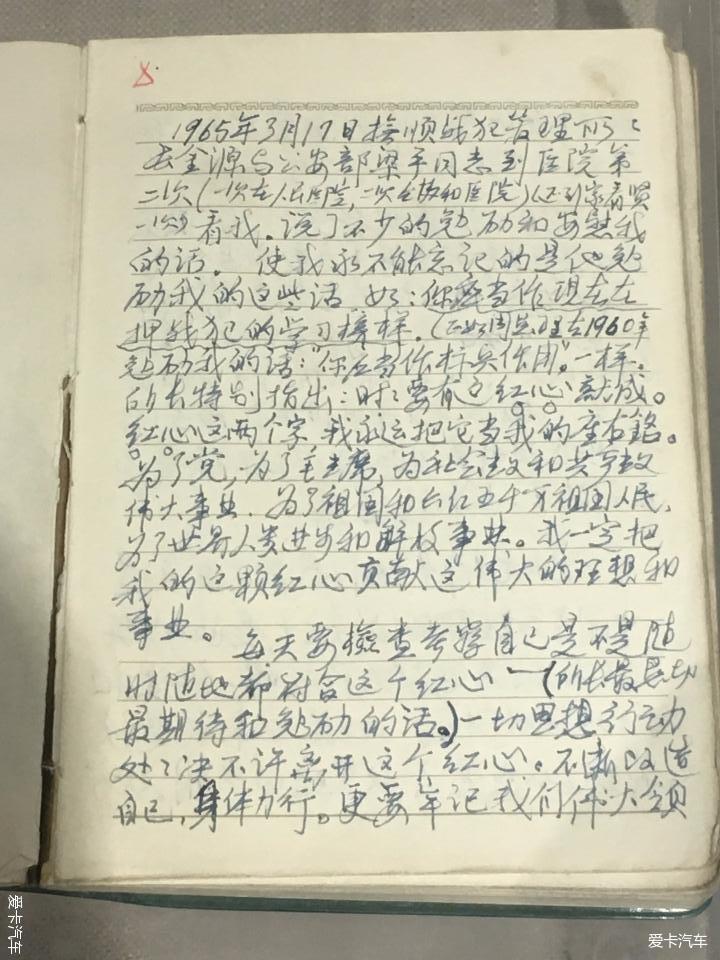 8
1965年3月17日撫順战犯管理所所
长金源与公安部梁平同志到医院第
二次(一次在人民医院,二次在协和医院)(还到家看望
一次)看我。说了不少的勉励和安慰我
的话。使我永不能忘记的是他勉
励我的这些话 如:你应当作现在在
押战犯的学习榜样。(正如周总理在1960年
勉励我的话:“你应当作标兵作用”。一样。
所长特别指出:时时要有这红心就成。
红心这两个字 我永远把它当我的座右銘。
为了党,为了毛主席,为社会主义和共产主义
伟大事业,为了祖国和六亿五千万祖国人民,
为了世界人类进步和解放事业。我一定把
我的这颗红心貢献这伟大的理想和
事业。
每天要檢查考察自己是不是随
时随地都符合这个红心一(所长最后
最期待和勉励的话。)一切思想行动
处处决不许离开这个红心。不断改造
自己,身体力行。更要牢记我们伟大领
爱卡汽车
爱卡汽车